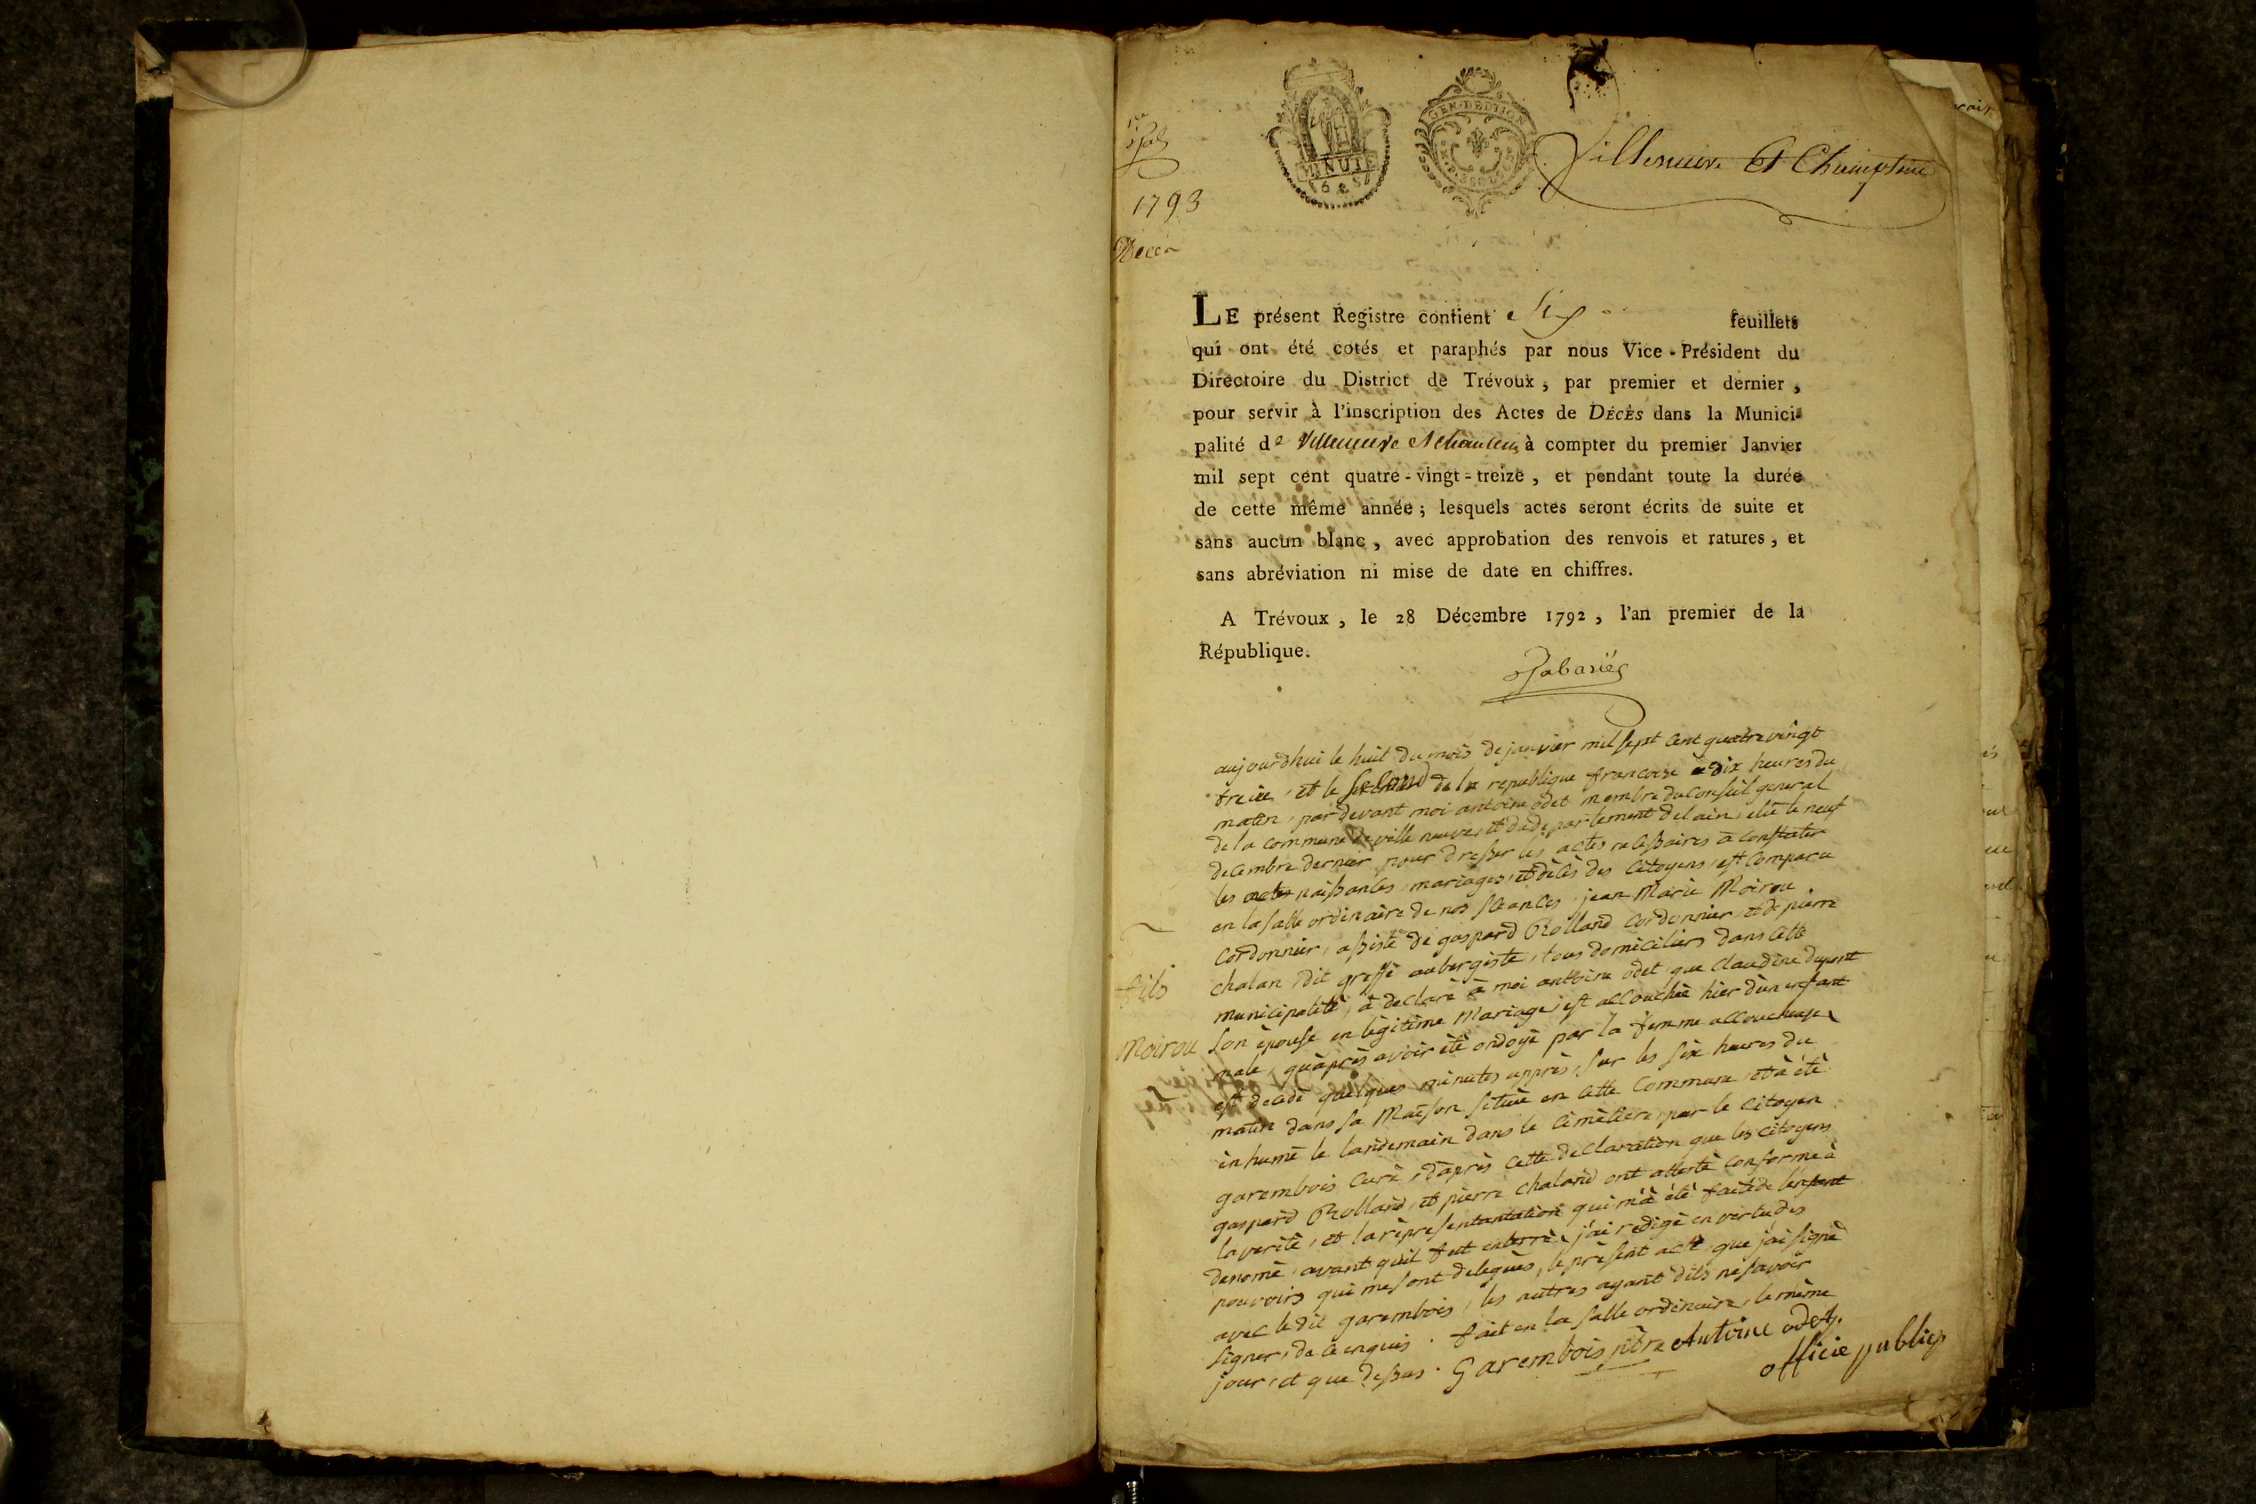 1793
MINUTE
GEN. DEDIION
Villeneuve Et
LE présent Registre contient Six feuillets
qui ont été cotés et paraphés par nous Vice-Président du
Directoire du District de Trévoux, par premier et dernier,
pour servir à l'inscription des Actes de DÉCÈS dans la Munici-
palité de Villeneuve à compter du premier Janvier
mil sept cent quatre-vingt-treize, et pendant toute la durée
de cette même année; lesquels actes seront écrits de suite et
sans aucun blanc, avec approbation des renvois et ratures, et
sans abréviation ni mise de date en chiffres.
A Trévoux, le 28 Décembre 1792, l'an premier de la
République.
aujourdhui le huit du mois de janvier mil sept cent quatre vingt
treize, et le second de la republique francoise a dix heures du
matin, par devant moi antoine odet membre du conseil general
de la commune de ville neuve, et du departement delain, elu le neuf
decembre dernier pour dresser les actes necessaires a constater
les actes naissances, mariages, et décès des citoyens, est comparu
en la salle ordinaire de nos séances jean Marie Moirou
cordonnier, assisté de gaspard Rolland cordonnier, et de pierre
chalan, dit greffé aubergiste, tous domiciliers dans cette
fils
municipalité, à déclaré à moi antoine odet que claudine dupont
Moirou
son épouse en légitime Mariage, est accouchée hier d'un enfant
male, qu'après avoir été ondoyé par la femme accoucheuse,
est decedé quelques minutes apprès, sur les six heures du
matin dans sa Maison située en cette commune, et à été
inhumé le landemain dans le cimetiere par le citoyen
garembois curé, d'après cette declaration que les citoyens
gaspard Rolland, et pierre chaland ont attesté conforme à
la verité, et la représentantation qui m'à été faite de l'enfant
denomé, avant qu'il fut enterré, j'ai redigé en vertu des
pouvoirs qui me sont delegués, le présent acte, que j'ai signé
avec le dit garembois, les autres ayant dits ne savoir
signer, de ce enquis. fait en la salle ordinaire, le même
jour, et que dessus. Garembois ptre Antoine odet.
officie public